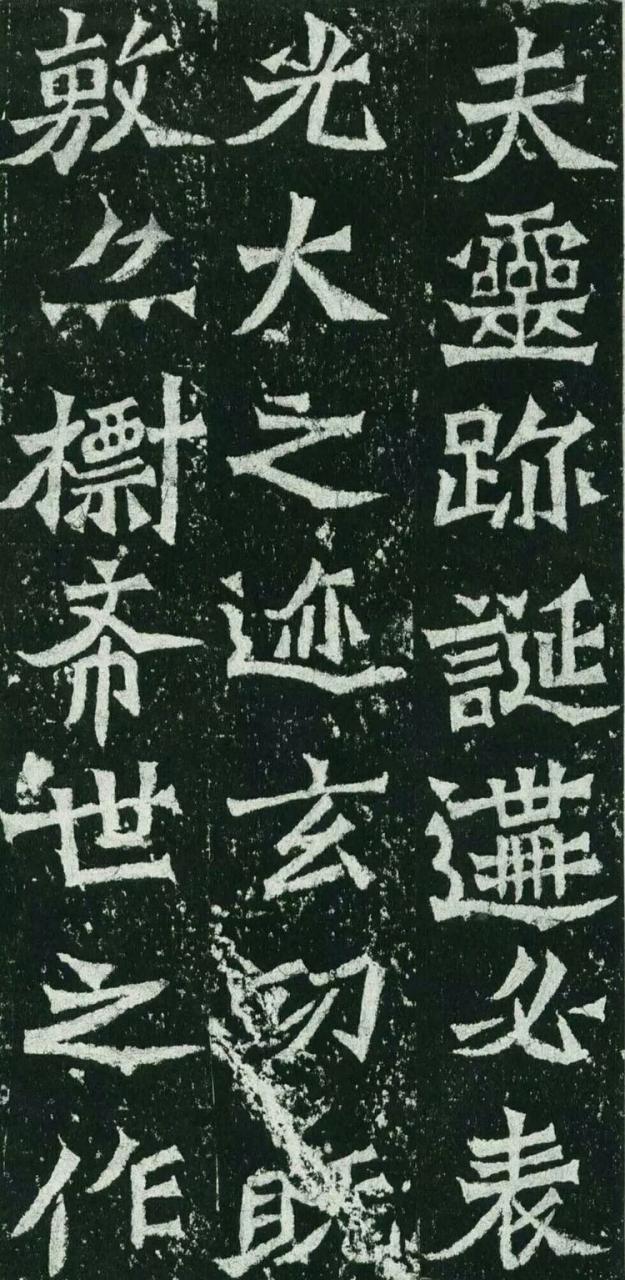 夫靈跡誕遘必表
光大之迹玄功既
敷亦㯹希世之作